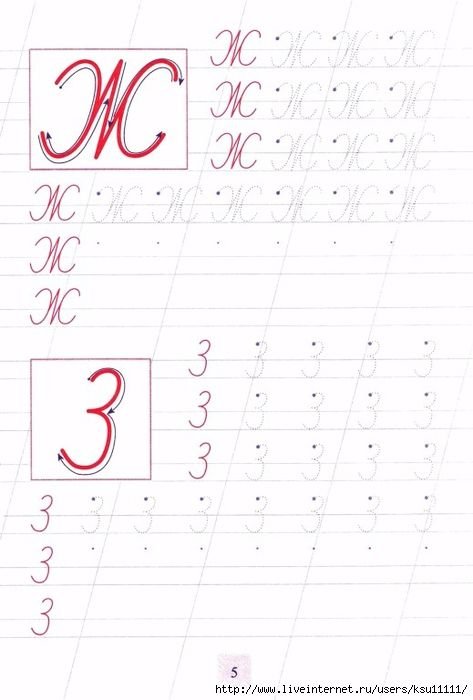 Ж
Ж Ж Ж Ж
Ж Ж Ж Ж
Ж Ж Ж Ж
Ж Ж Ж Ж Ж Ж Ж
Ж
Ж
З
З З З З З
З З З З З
З З З З З
З З З З З З З З
З
З
5
http://www.liveinternet.ru/users/ksu11111/